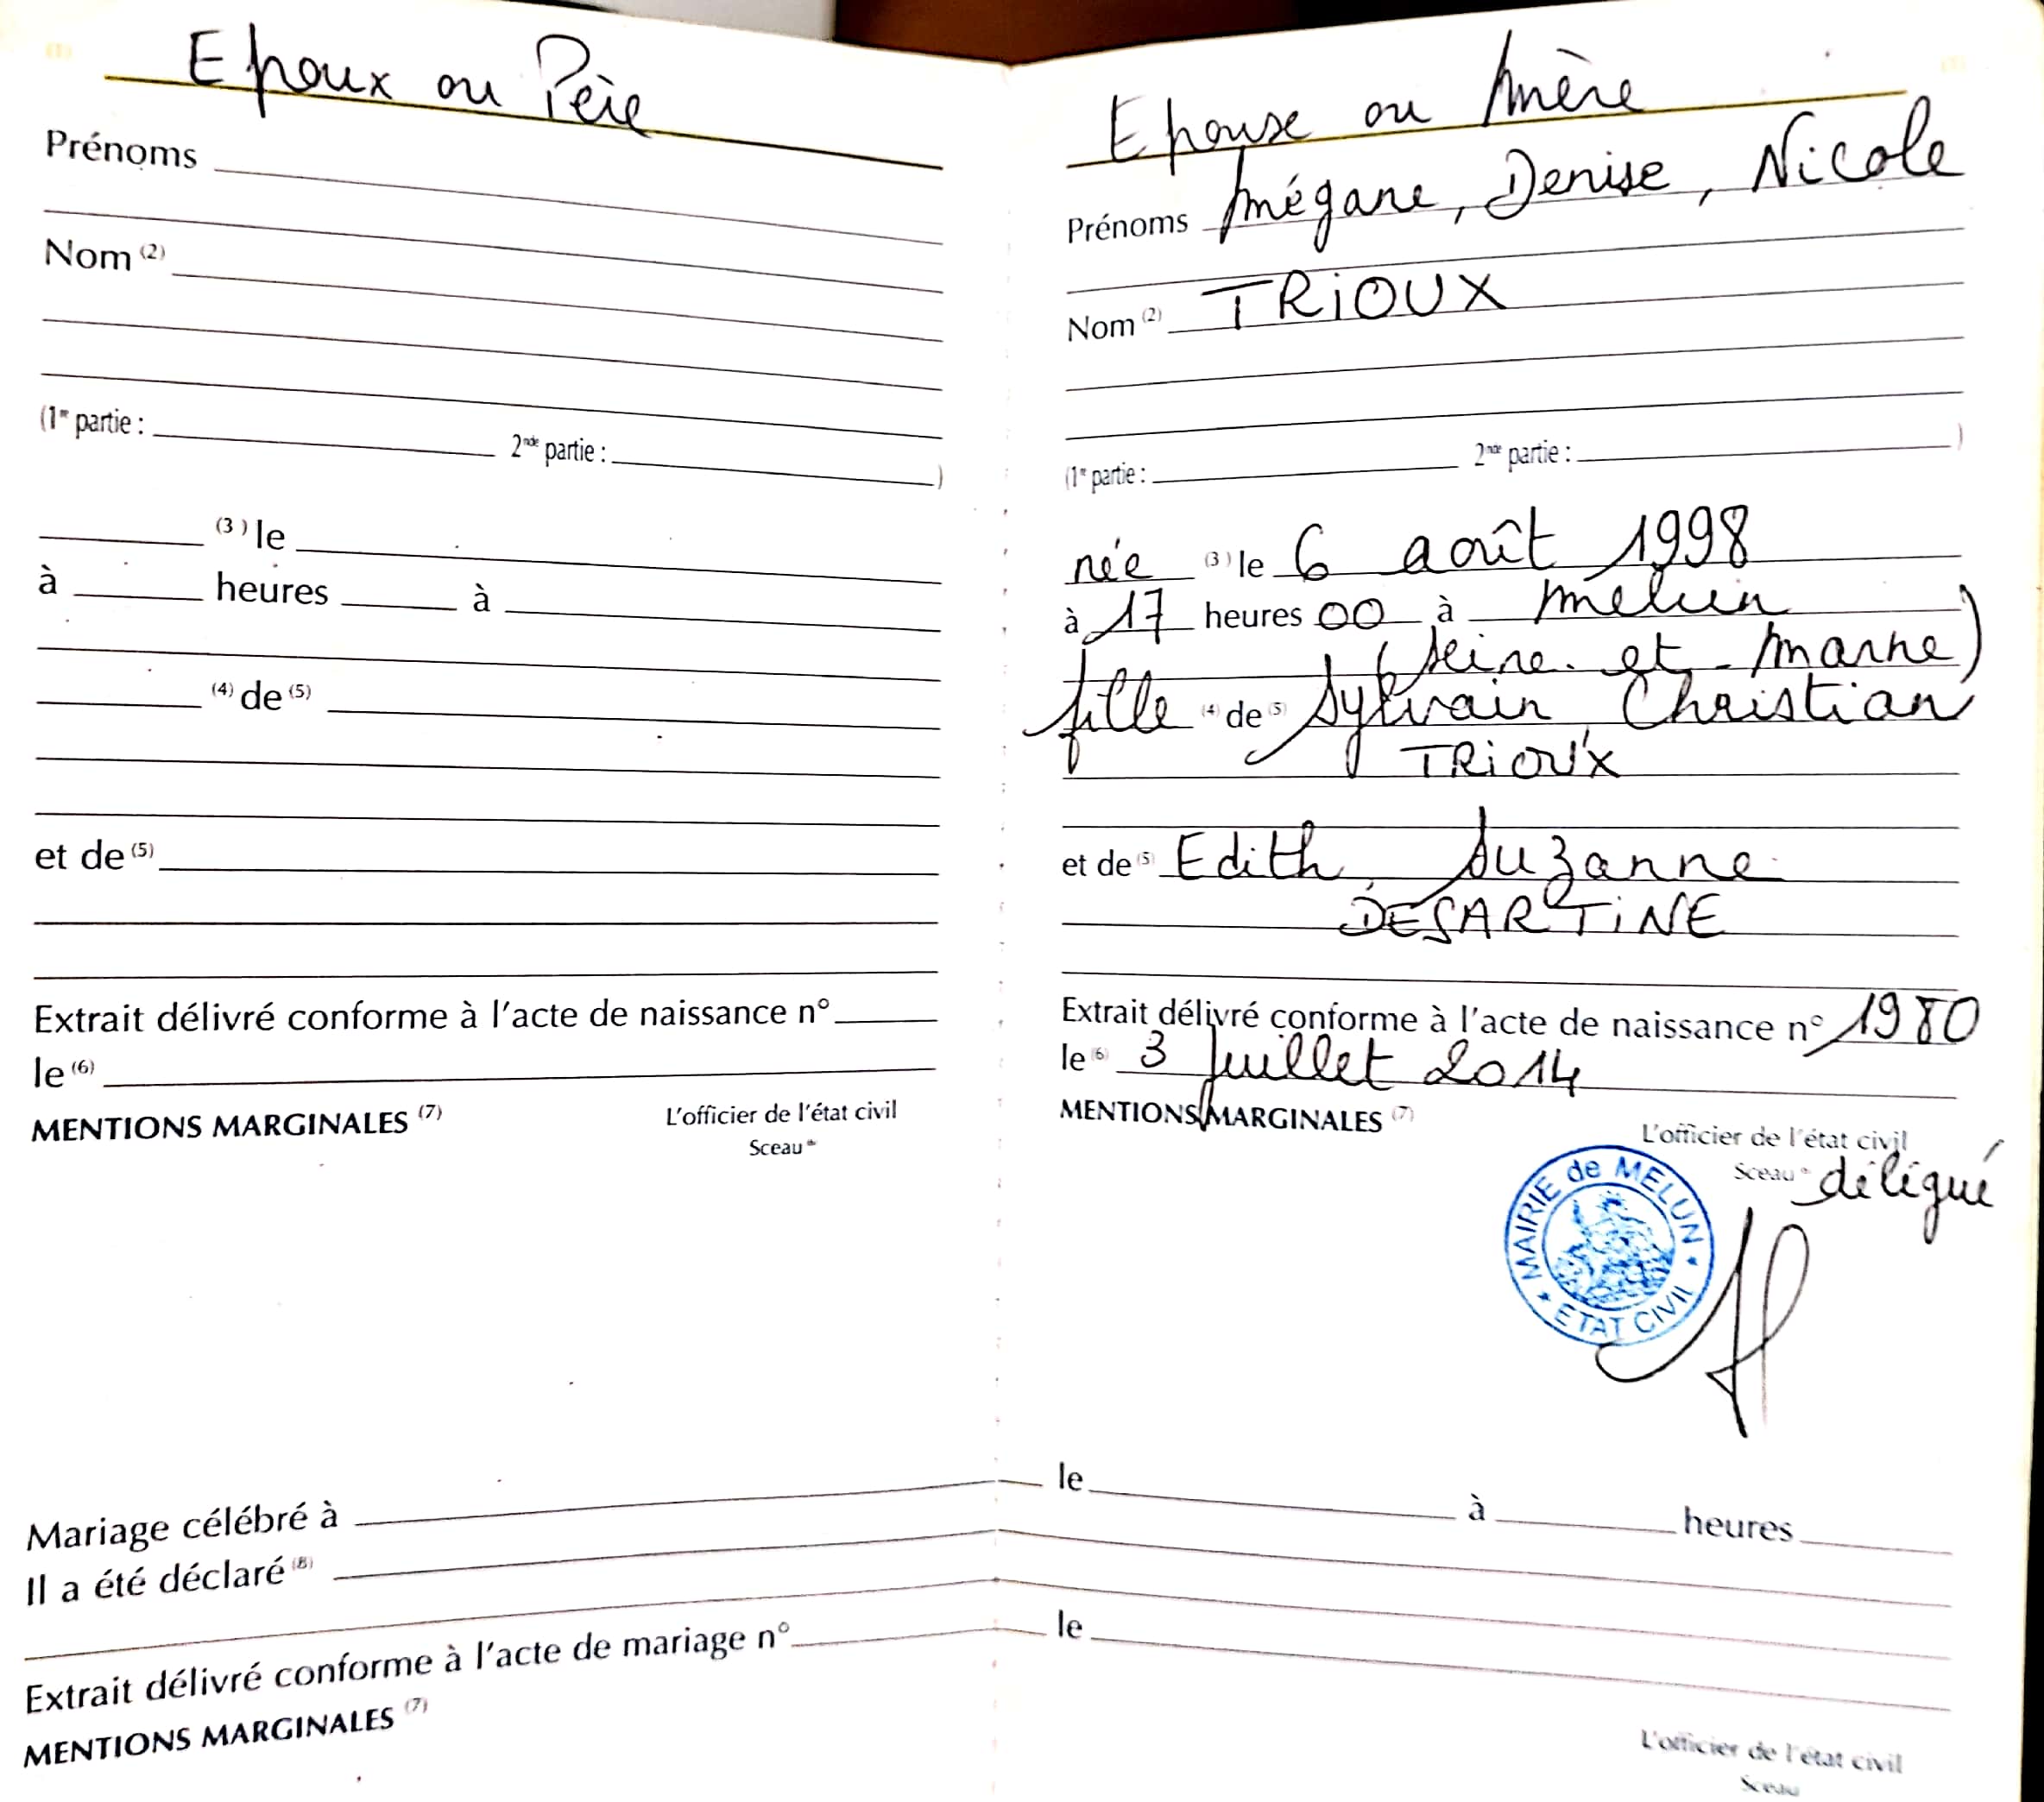 Epoux ou Père
Prénoms
Nom (2)
(1re partie : 2nde partie : )
(3) le
à heures à
(4) de (5)
et de (5)
Extrait délivré conforme à l'acte de naissance n°
le (6)
MENTIONS MARGINALES (7)
L'officier de l'état civil
Sceau
Epouse ou Mère
Prénoms Mégane, Denise, Nicole
Nom (2) TRIOUX
(1re partie : 2nde partie : )
née (3) le 6 août 1998
à 17 heures 00 à Melun
(Seine-et-Marne)
fille (4) de (5) Sylvain, Christian
TRIOUX
et de (5) Edith, Suzanne
DESARTINE
Extrait délivré conforme à l'acte de naissance n° 1980
le (6) 3 Juillet 2014
MENTIONS MARGINALES (7)
L'officier de l'état civil
Sceau délégué
MAIRIE de MELUN
ETAT CIVIL
Mariage célébré à le à heures
Il a été déclaré (8)
Extrait délivré conforme à l'acte de mariage n° le
MENTIONS MARGINALES (7)
L'officier de l'état civil
Sceau